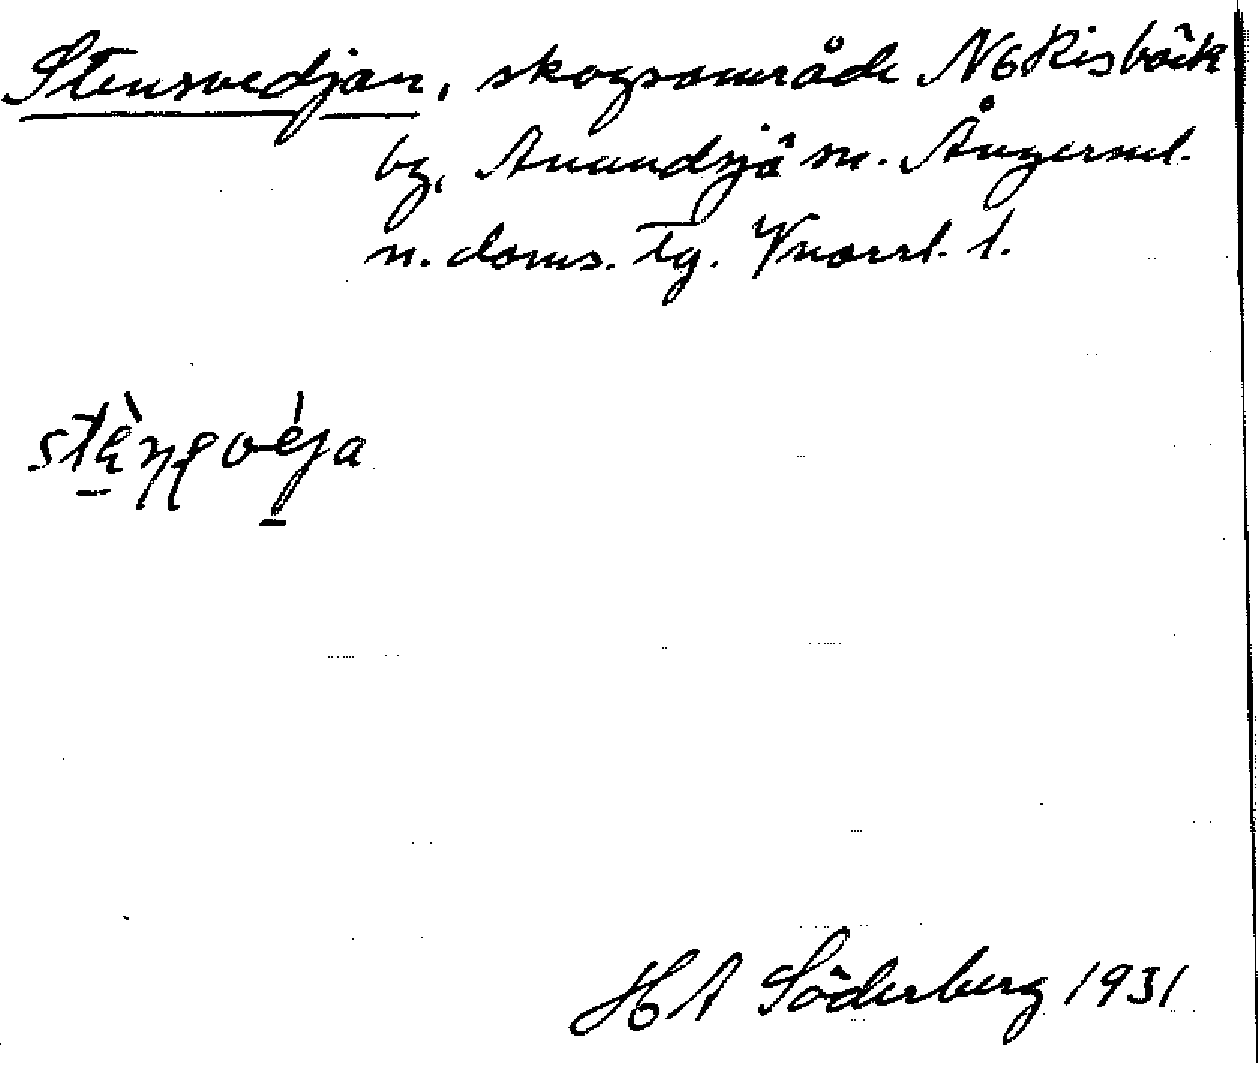 Stensvedjan, skogsområde N6 Risbäck
by, Anundsjö sn. Ångerml.
n. doms. tg. Vnorrl. l.
HA Söderberg 1931